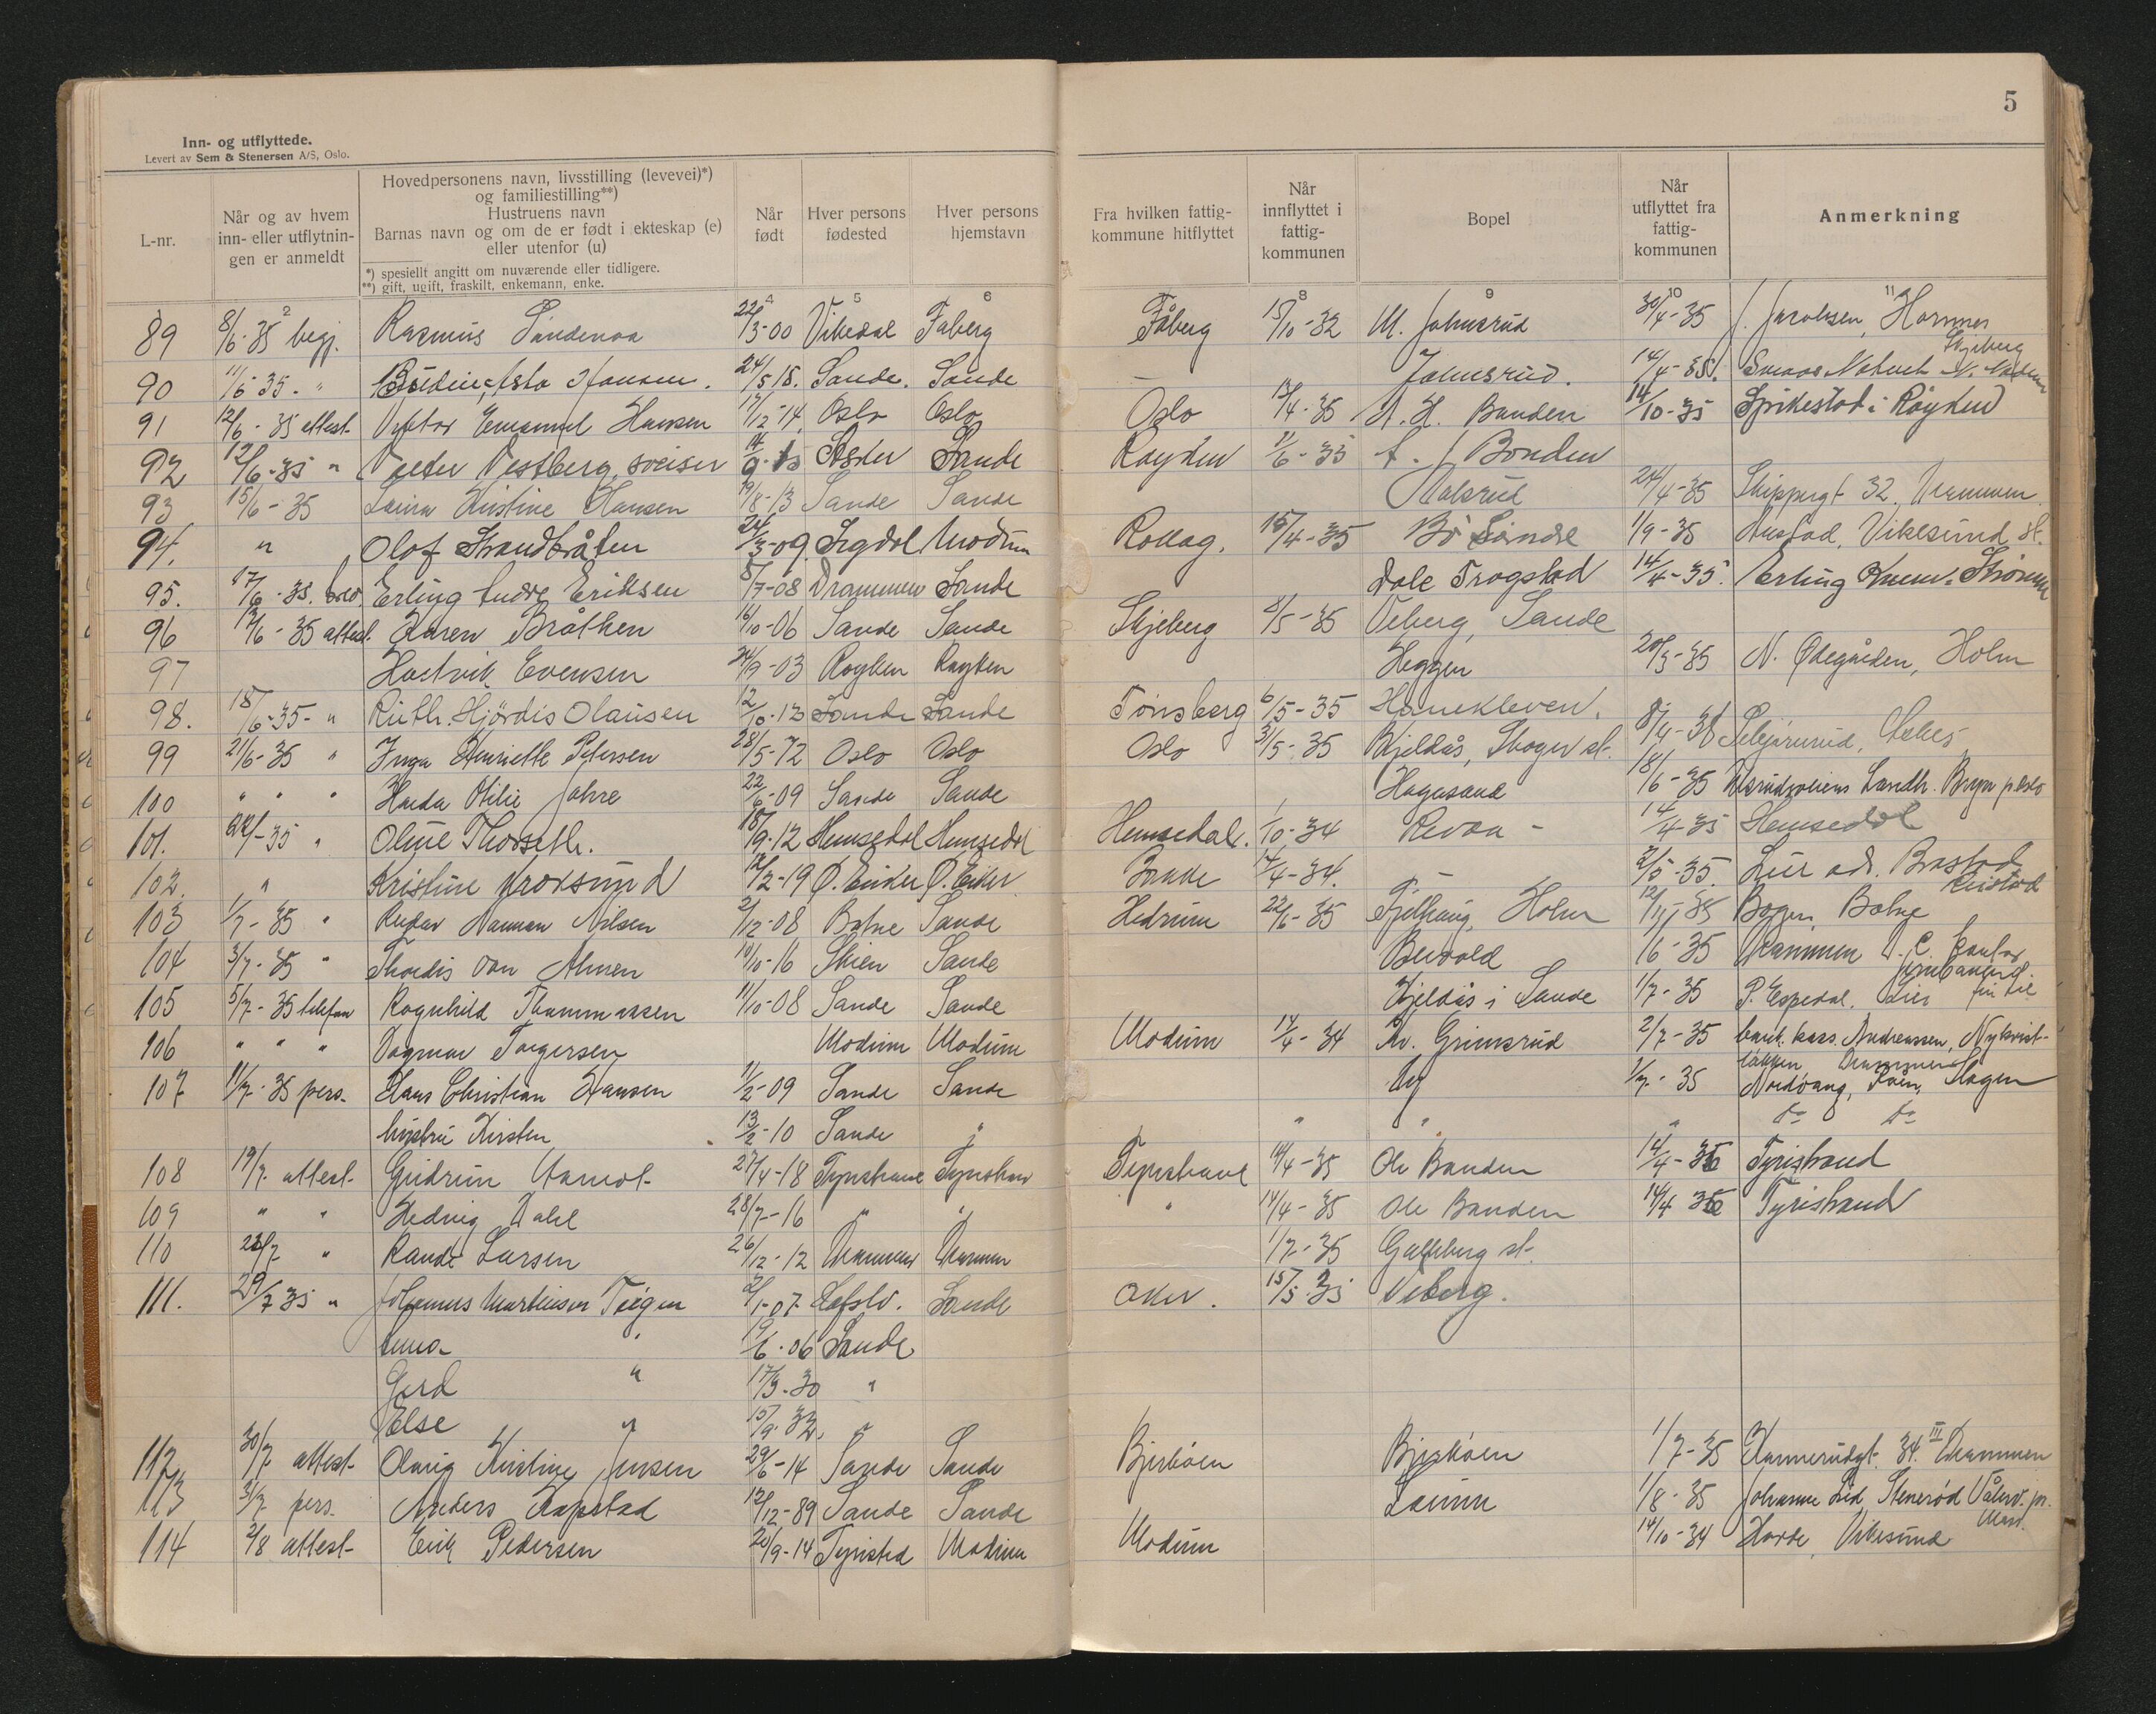 5
Inn- og utflyttede.
Levert av Sem & Stenersen A/S, Oslo.
L-nr.
Når og av hvem
inn- eller utflytnin-
gen er anmeldt
Hovedpersonens navn, livsstilling (levevei)*)
og familiestilling**)
Hustruens navn
Barnas navn og om de er født i ekteskap (e)
eller utenfor (u)
*) spesiellt angitt om nuværende eller tidligere.
**) gift, ugift, fraskilt, enkemann, enke.
Når
født
Hver persons
fødested
Hver persons
hjemstavn
Fra hvilken fattig-
kommune hitflyttet
Når
innflyttet i
fattig-
kommunen
Bopel
Når
utflyttet fra
fattig-
kommunen
Anmerkning
2 4 5 6 8 9 10 11
89 8/6-35 begj. Rasmus Sandenaa 22/3-00 Vikedal Faberg Fåberg 15/10-32 M. Johnsrud 30/4-35 J. Jacobsen, Hornnes
90 11/6-35 " Jonsen. 24/5 18. Sande. Sande Johnsrud. 14/4-35.
91 12/6-35 attest- Viktor Emanuel Hansen 17/12-14. Oslo Oslo Oslo 13/4-35 A. H. Banden 14/10-35 Spikestad i Røyken
92 12/6-35 " Vestberg, sveiser Asker Sande Røyken 11/6-35 Bonden
93 15/6-35 Laura Kristine Hansen 19/8-13 Sande Sande 24/4-35 Skippergt 32, Drammen
94. " Olaf Strandbråten 24/3-09. Sigdal Modum Rollag. 15/4-35 Bö Sande 1/9-35 Austad, Vikesund st.
95. 17/6-35. Erling Eriksen 8/7-08 Drammen Sande Dale Trogstad 14/4-35. Erling
96 17/6-35 attest. Karen Bråthen 16/10-06 Sande Sande Skjeberg 8/5-35 Veberg, Sande
97 Evensen 24/9-03 Røyken Røyken Heggen 20/3-35 N. Ødegården, Holm
98. 18/6-35- " Ruth. Hjördis Olausen 12/10-13 Sande Sande Tønsberg 6/5-35 Hanekleven.
99 21/6-35 " Inga Henriette Petersen 28/5-72 Oslo Oslo Oslo 3/5-35 Kjeldås, Skoger st.
100 " " " Otilie Jahre 22/6-09 Sande Sande Hagasand 18/6-35 Landh. Bryn p. Oslo
101. 22/6-35 " Oline Thorseth. 18/9-12 Hemsedal Hemsedal Hemsedal. 1/10-34 Revaa - 14/4-35 Hemsedal
102. " Kristine Kroksund 12/2-19 Ø. Eiker Ø. Eiker Sande 14/4-34. - 2/5-35. Lier adr.
103 1/7-35 " Nilsen 2/12-08 Botne Sande Hedrum 22/6-35 Fjellhaug, Holm Botne
104 3/7-35 " Thordis von Ahnen 10/10-16 Skien Sande Bervold 16-35 Drammen
105 5/7-35 telefon Ragnhild Thommassen 11/10-08 Sande Sande Kjeldås i Sande 1/7-35 P. Espedal. Lier
106 " " " Dagmar Torgersen Modum Modum Modum 14/4-34 Av. Grimsrud 2/7-35 Andreassen, Nykvist-
løkken Drammen
107 11/7-35 pers. Hans Christian Hansen 11/2-09 Sande Sande By 1/7-35 Nordvang, Skogen
hustru Kirsten 13/2-10 Sande " " " " do do
108 19/7. attest- Gudrun 27/4-18 Tyristrand Tyristrand Tyristrand 14/4-35 Ole Banden 14/4-36 Tyristrand
109 " " Hedvig Dahl 28/7-16 " " " 14/4-35 Ole Banden 14/4 36 Tyristrand
110 23/7 " Randi Larsen 26/12-12 Drammen Drammen 1/7-35 Galleberg st.
111. 29/7 35 " Johannes Martinsen Teigen 2/1-07. Sande Aker. 15/5-35 Veberg.
Anna " 19/6-06 Sande
Gerd " 17/3-30 "
Else " 15/9-32. "
112 30/7 attest- Olaug Kristine Jensen 29/6-14 Sande Sande Bjerkøen Bjerkøen 1/7-35 34 III Drammen
113 31/7 pers. Anders Kapstad 12/12-89 Sande Sande 1/8-35 Stenerød Våler pr. Moss.
114 2/8 attest- Erik Pedersen 20/9-14 Tyristrd Modum Modum 14/10-34 Vikesund